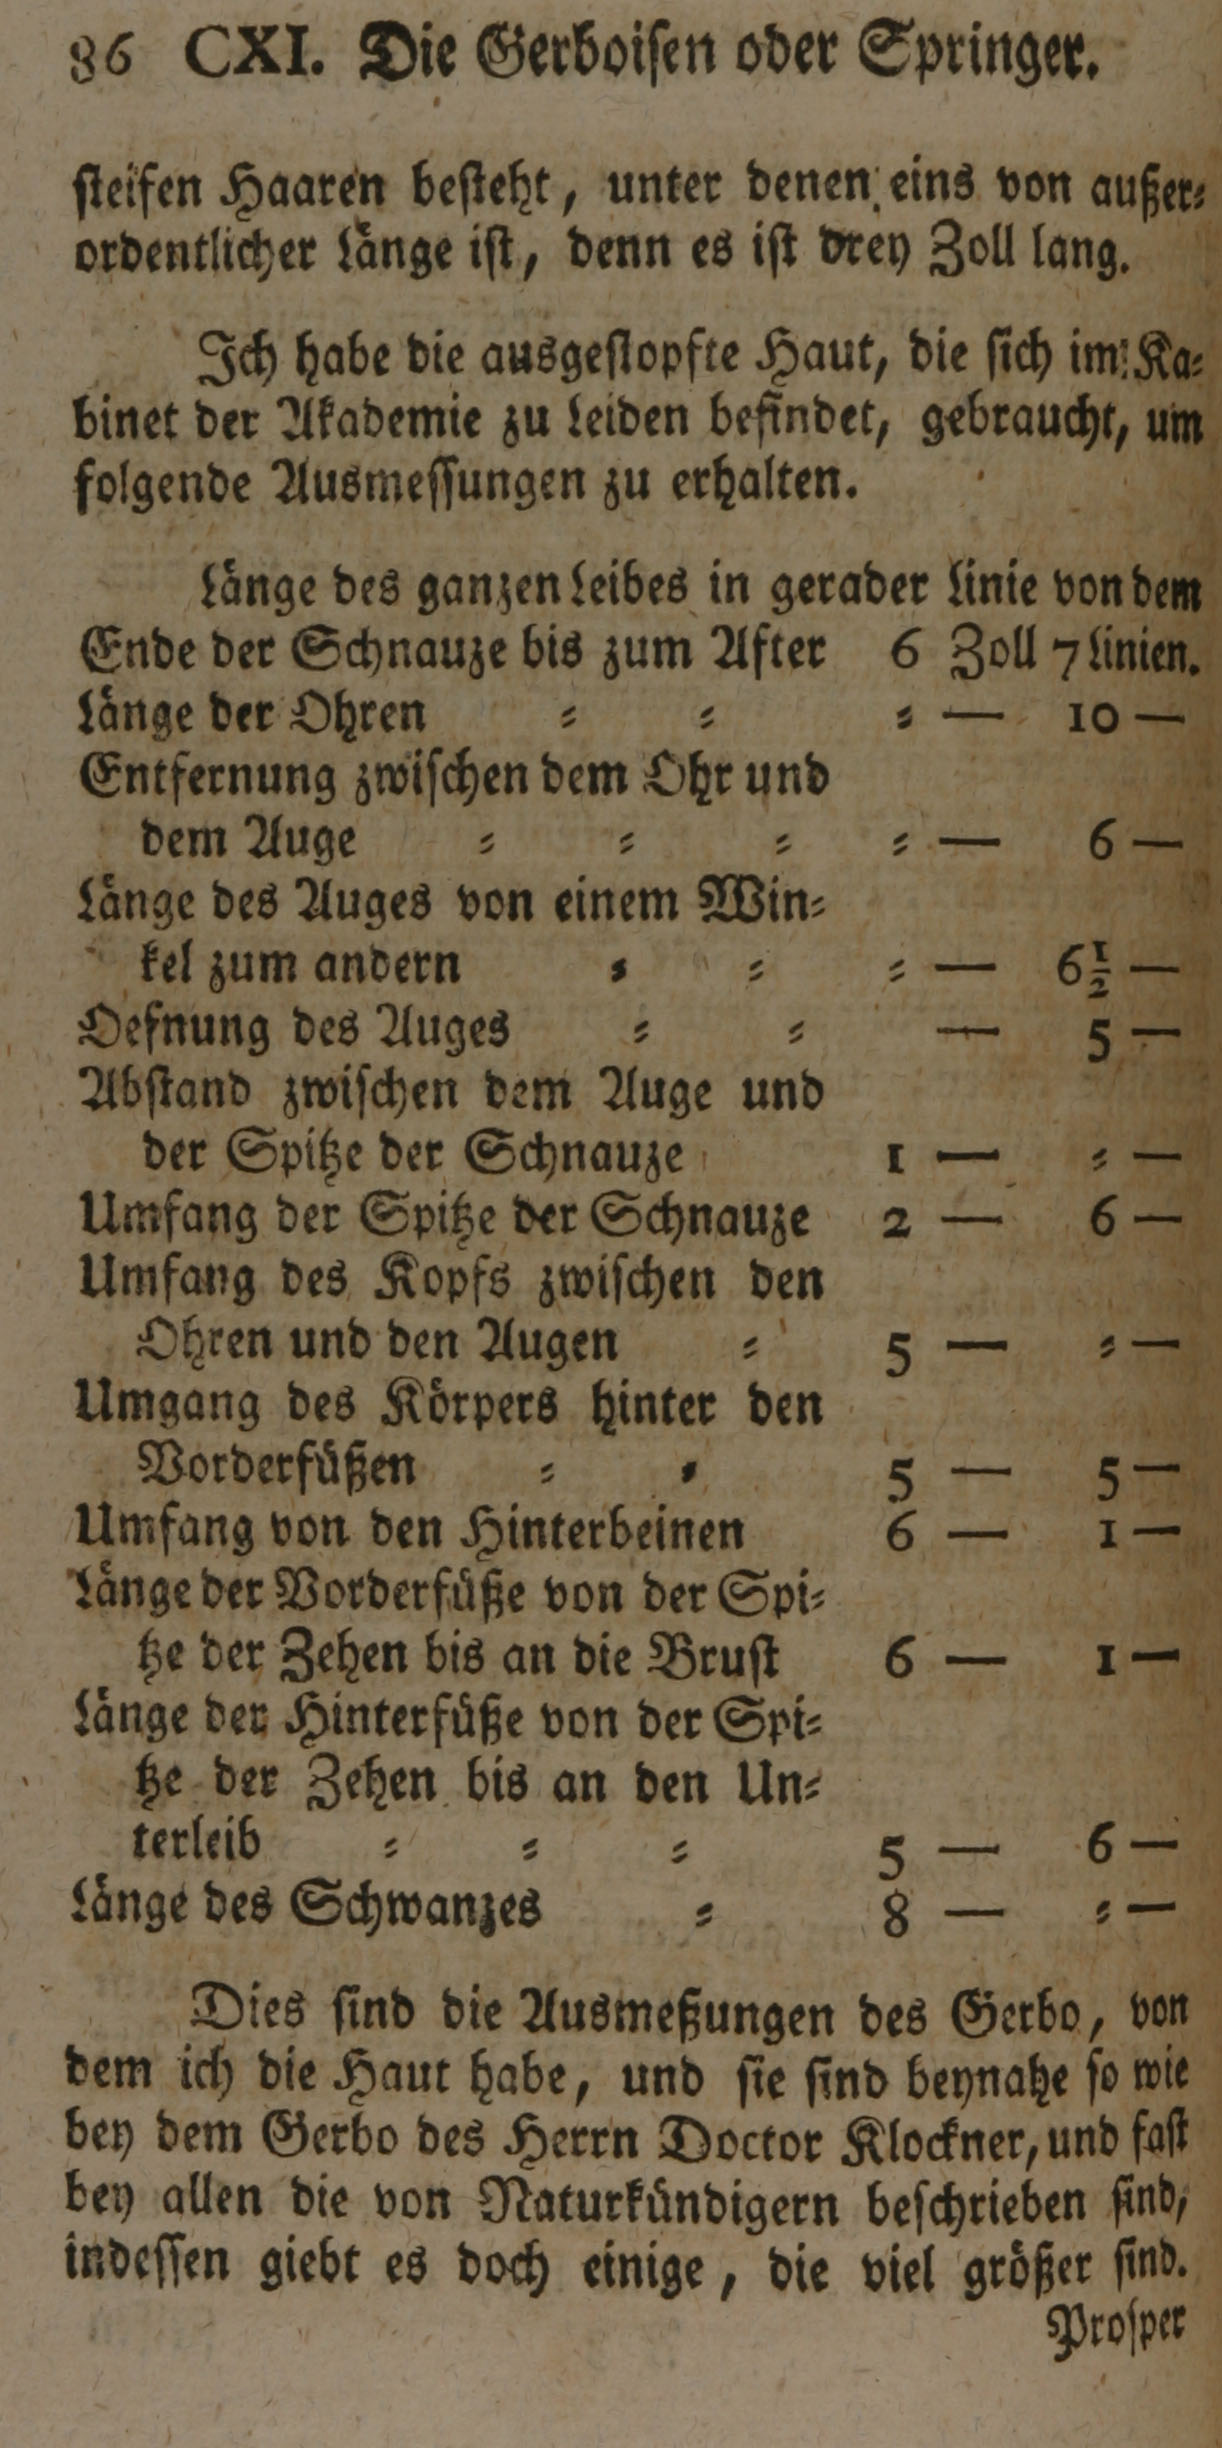 86 CXI. Die Gerboisen oder Springer.
steifen Haaren besteht, unter denen eins von außer⸗
ordentlicher Länge ist, denn es ist drey Zoll lang.
Ich habe die ausgestopfte Haut, die sich im Ka⸗
binet der Akademie zu Leiden befindet, gebraucht, um
folgende Ausmessungen zu erhalten.
Länge des ganzen Leibes in gerader Linie von dem
Ende der Schnauze bis zum After 6 Zoll 7 Linien.
Länge der Ohren ⸗ ⸗ ⸗ — 10 —
Entfernung zwischen dem Ohr und
dem Auge ⸗ ⸗ ⸗ ⸗ — 6 —
Länge des Auges von einem Win⸗
kel zum andern ⸗ ⸗ ⸗ — 6½ —
Oefnung des Auges ⸗ ⸗ — 5 —
Abstand zwischen dem Auge und
der Spitze der Schnauze 1 — ⸗ —
Umfang der Spitze der Schnauze 2 — 6 —
Umfang des Kopfs zwischen den
Ohren und den Augen ⸗ 5 — ⸗ —
Umgang des Körpers hinter den
Vorderfüßen ⸗ ⸗ 5 — 5 —
Umfang von den Hinterbeinen 6 — 1 —
Länge der Vorderfüße von der Spi⸗
tze der Zehen bis an die Brust 6 — 1 —
Länge der Hinterfüße von der Spi⸗
tze der Zehen bis an den Un⸗
terleib ⸗ ⸗ ⸗ 5 — 6 —
Länge des Schwanzes ⸗ 8 — ⸗ —
Dies sind die Ausmeßungen des Gerbo, von
dem ich die Haut habe, und sie sind beynahe so wie
bey dem Gerbo des Herrn Doctor Klockner, und fast
bey allen die von Naturkündigern beschrieben sind,
indessen giebt es doch einige, die viel größer sind.
Prosper